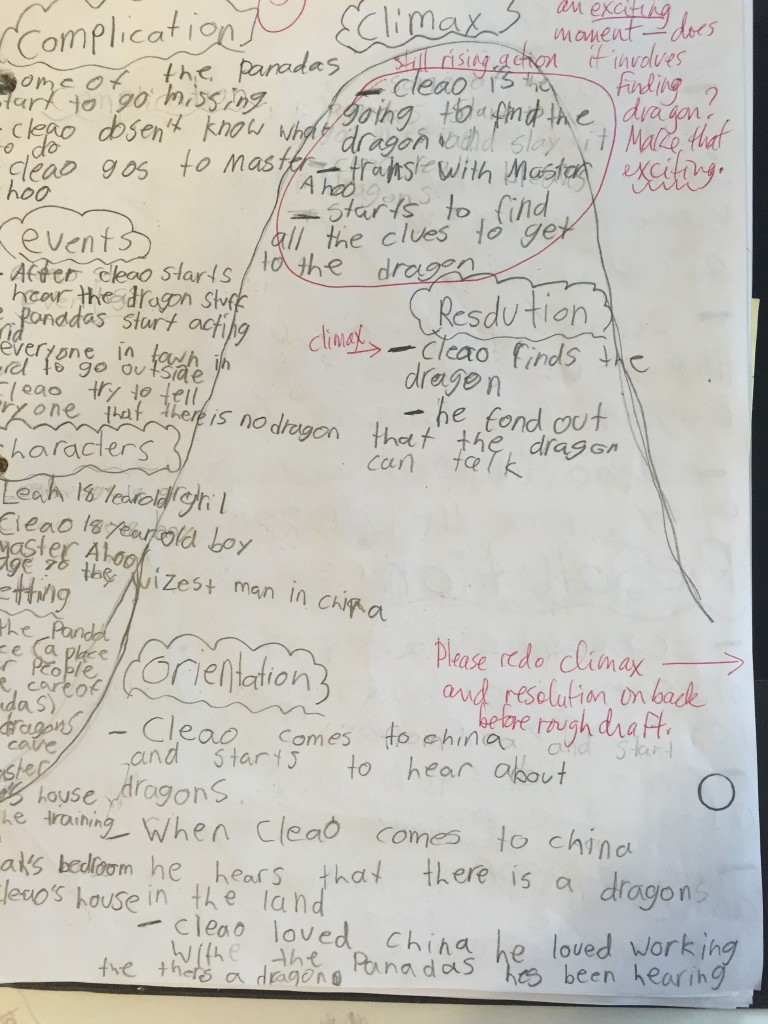 Complication
ome of the panadas
tart to go missing
- cleao dosen't know what
to do
cleao gos to Master
hoo
Climax
still rising action
- cleao is
going to find the
dragon
- trans with Master
Ahoo
- starts to find
all the clues to get
to the dragon
an exciting
moment - does
it involves
finding
dragon?
Make that
exciting.
events
- After cleao starts
hear the dragon stuff
panadas start acting
rid
everyone in town in
rd to go outside
Cleao try to tell
ryone that there is no dragon
Resolution
climax →
- cleao finds the
dragon
- he fond out
that the dragon
can talk
haracters
Leah 18 year old gril
Cleao 18 year old boy
Master Ahoo
age 78 the wizest man in china
etting
the Panda
ce (a place
r people
e care of
adas)
dragons
cave
aster
's house
he training
ah's bedroom
leao's house
Please redo climax →
and resolution on back
before rough draft.
Orientation
- Cleao comes to china
and starts to hear about
dragons.
- When Cleao comes to china
he hears that there is a dragons
in the land
- cleao loved china he loved working
with the Panadas hes been hearing
the thers a dragon